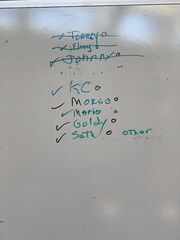 ✓ Torrey o
✓ Elroy o
✓ Johnny o
. . . . . .
✓ KC o
✓ Morse o
✓ Mario o
✓ Goldy o
✓ Seth o other